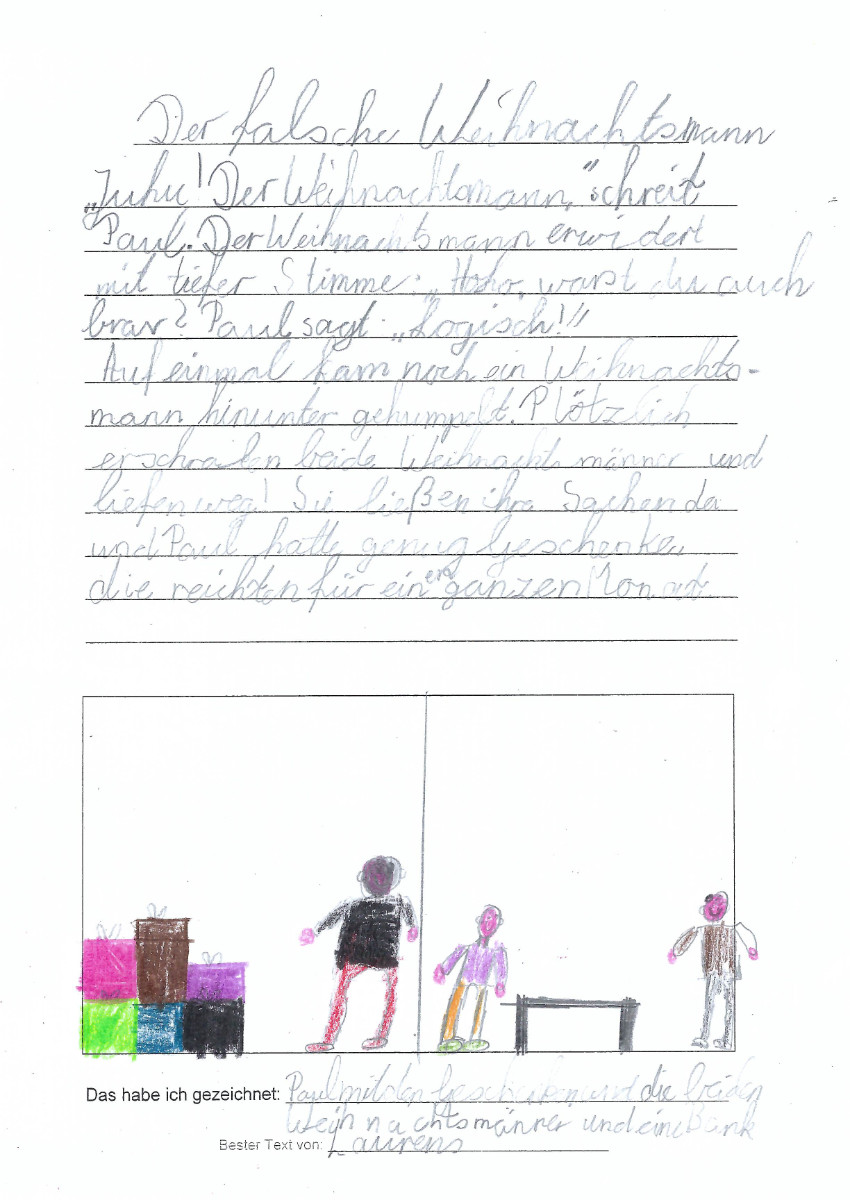 Der falsche Weihnachtsmann
„Juhu! Der Weihnachtsmann," schreit
Paul. Der Weihnachtsmann erwidert
mit tiefer Stimme: „Hoho, warst du auch
brav? Paul sagt: „Logisch!"
Auf einmal kam noch ein Weihnachts-
mann hinunter gehumpelt. Plötzlich
erschraken beide Weihnachtsmänner und
liefen weg! Sie ließen ihre Sachen da
und Paul hatte genug Geschenke,
die reichten für einen ganzen Monat
Das habe ich gezeichnet: Paul mit den Geschenken und die beiden
Weihnachtsmänner und eine Bank
Bester Text von: Laurens